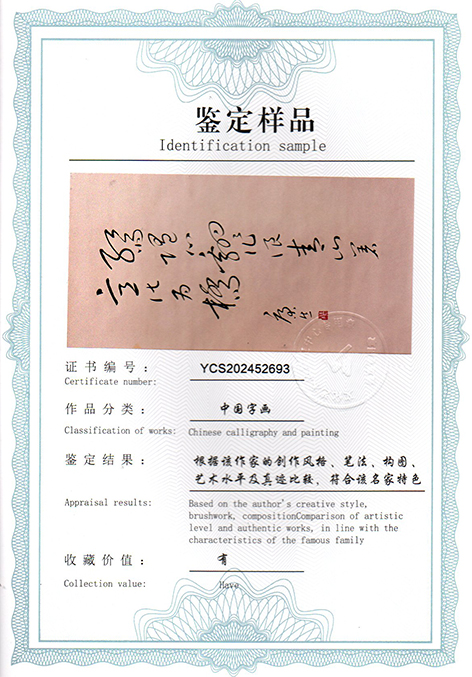 鉴定样品
Identification sample
证书编号：
YCS202452693
Certificate number:
作品分类：
中国字画
Classification of works:
Chinese calligraphy and painting
鉴定结果：
根据该作家的创作风格、笔法、构图、
艺术水平及真迹比较，符合该名家特色
Appraisal results:
Based on the author's creative style,
brushwork, compositionComparison of artistic
level and authentic works, in line with the
characteristics of the famous family
收藏价值：
有
Collection value:
Have